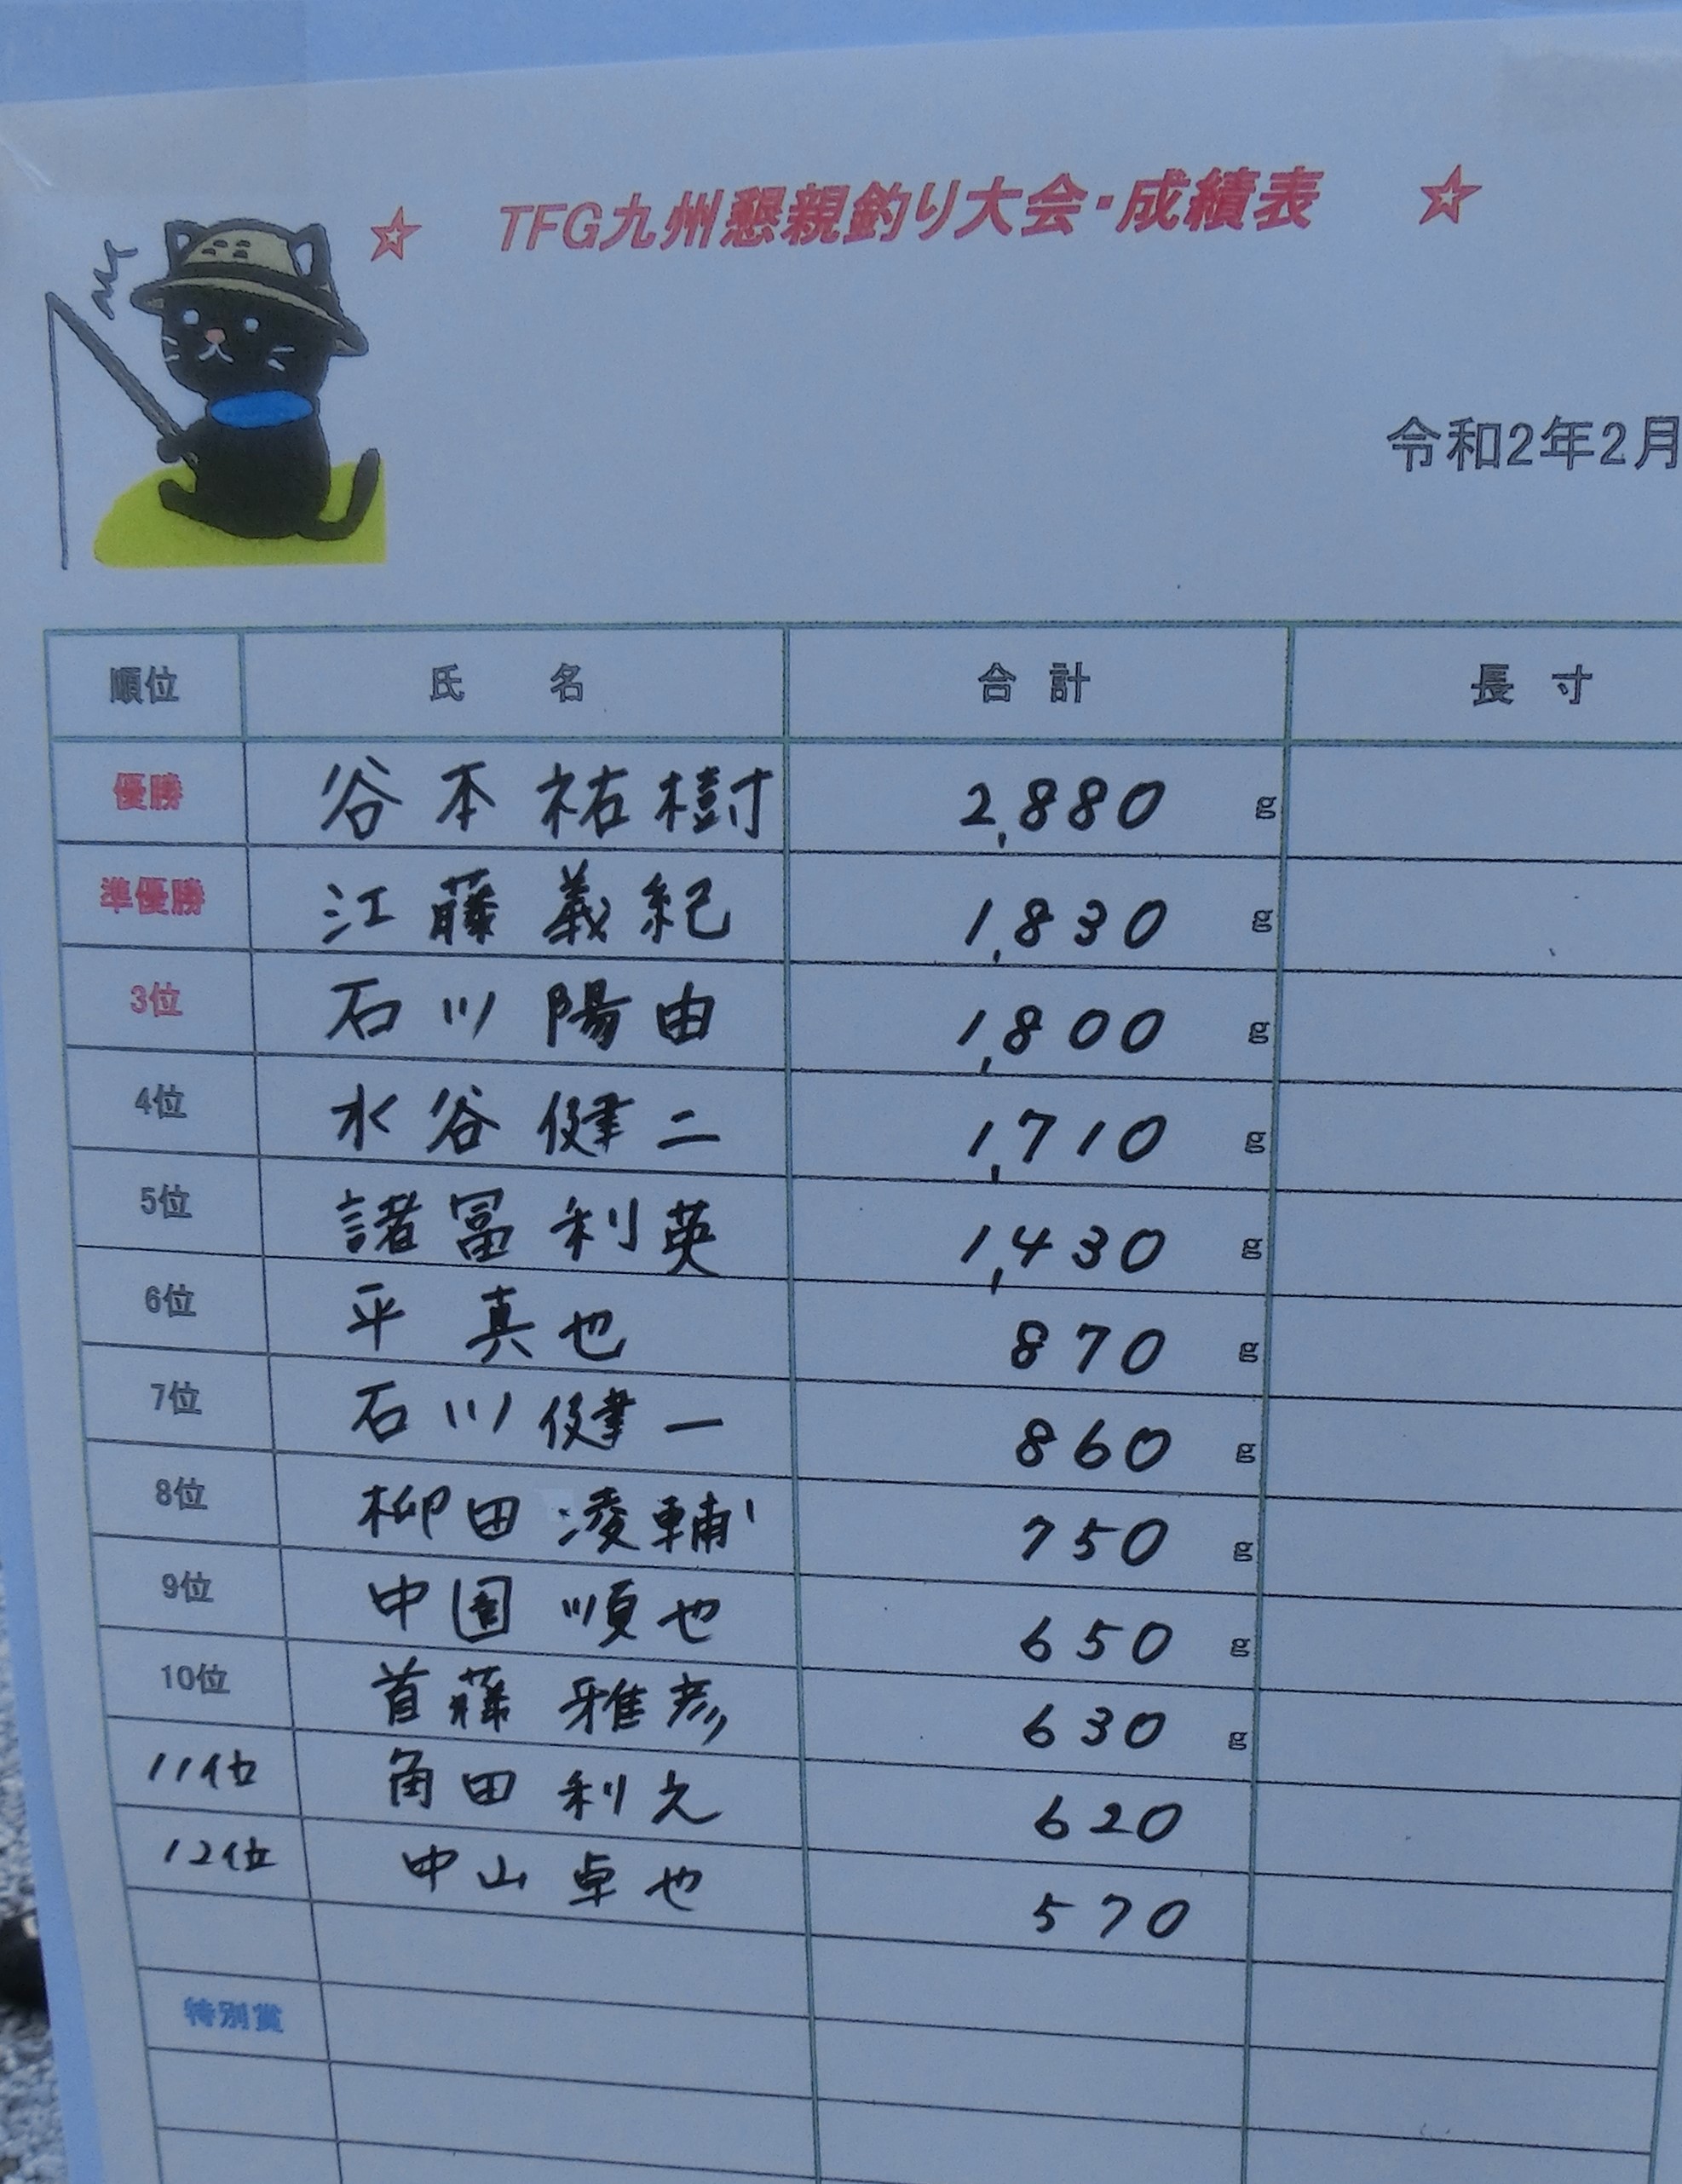 ☆ TFG九州懇親釣り大会・成績表 ☆
令和2年2月
順位 氏名 合計 長寸
優勝 谷本祐樹 2,880 g
準優勝 江藤義紀 1,830 g
3位 石川陽由 1,800 g
4位 水谷健二 1,710 g
5位 諸冨利英 1,430 g
6位 平真也 870 g
7位 石川健一 860 g
8位 柳田凌輔 750 g
9位 中園順也 650 g
10位 首藤雅彦 630 g
11位 角田利之 620
12位 中山卓也 570
特別賞